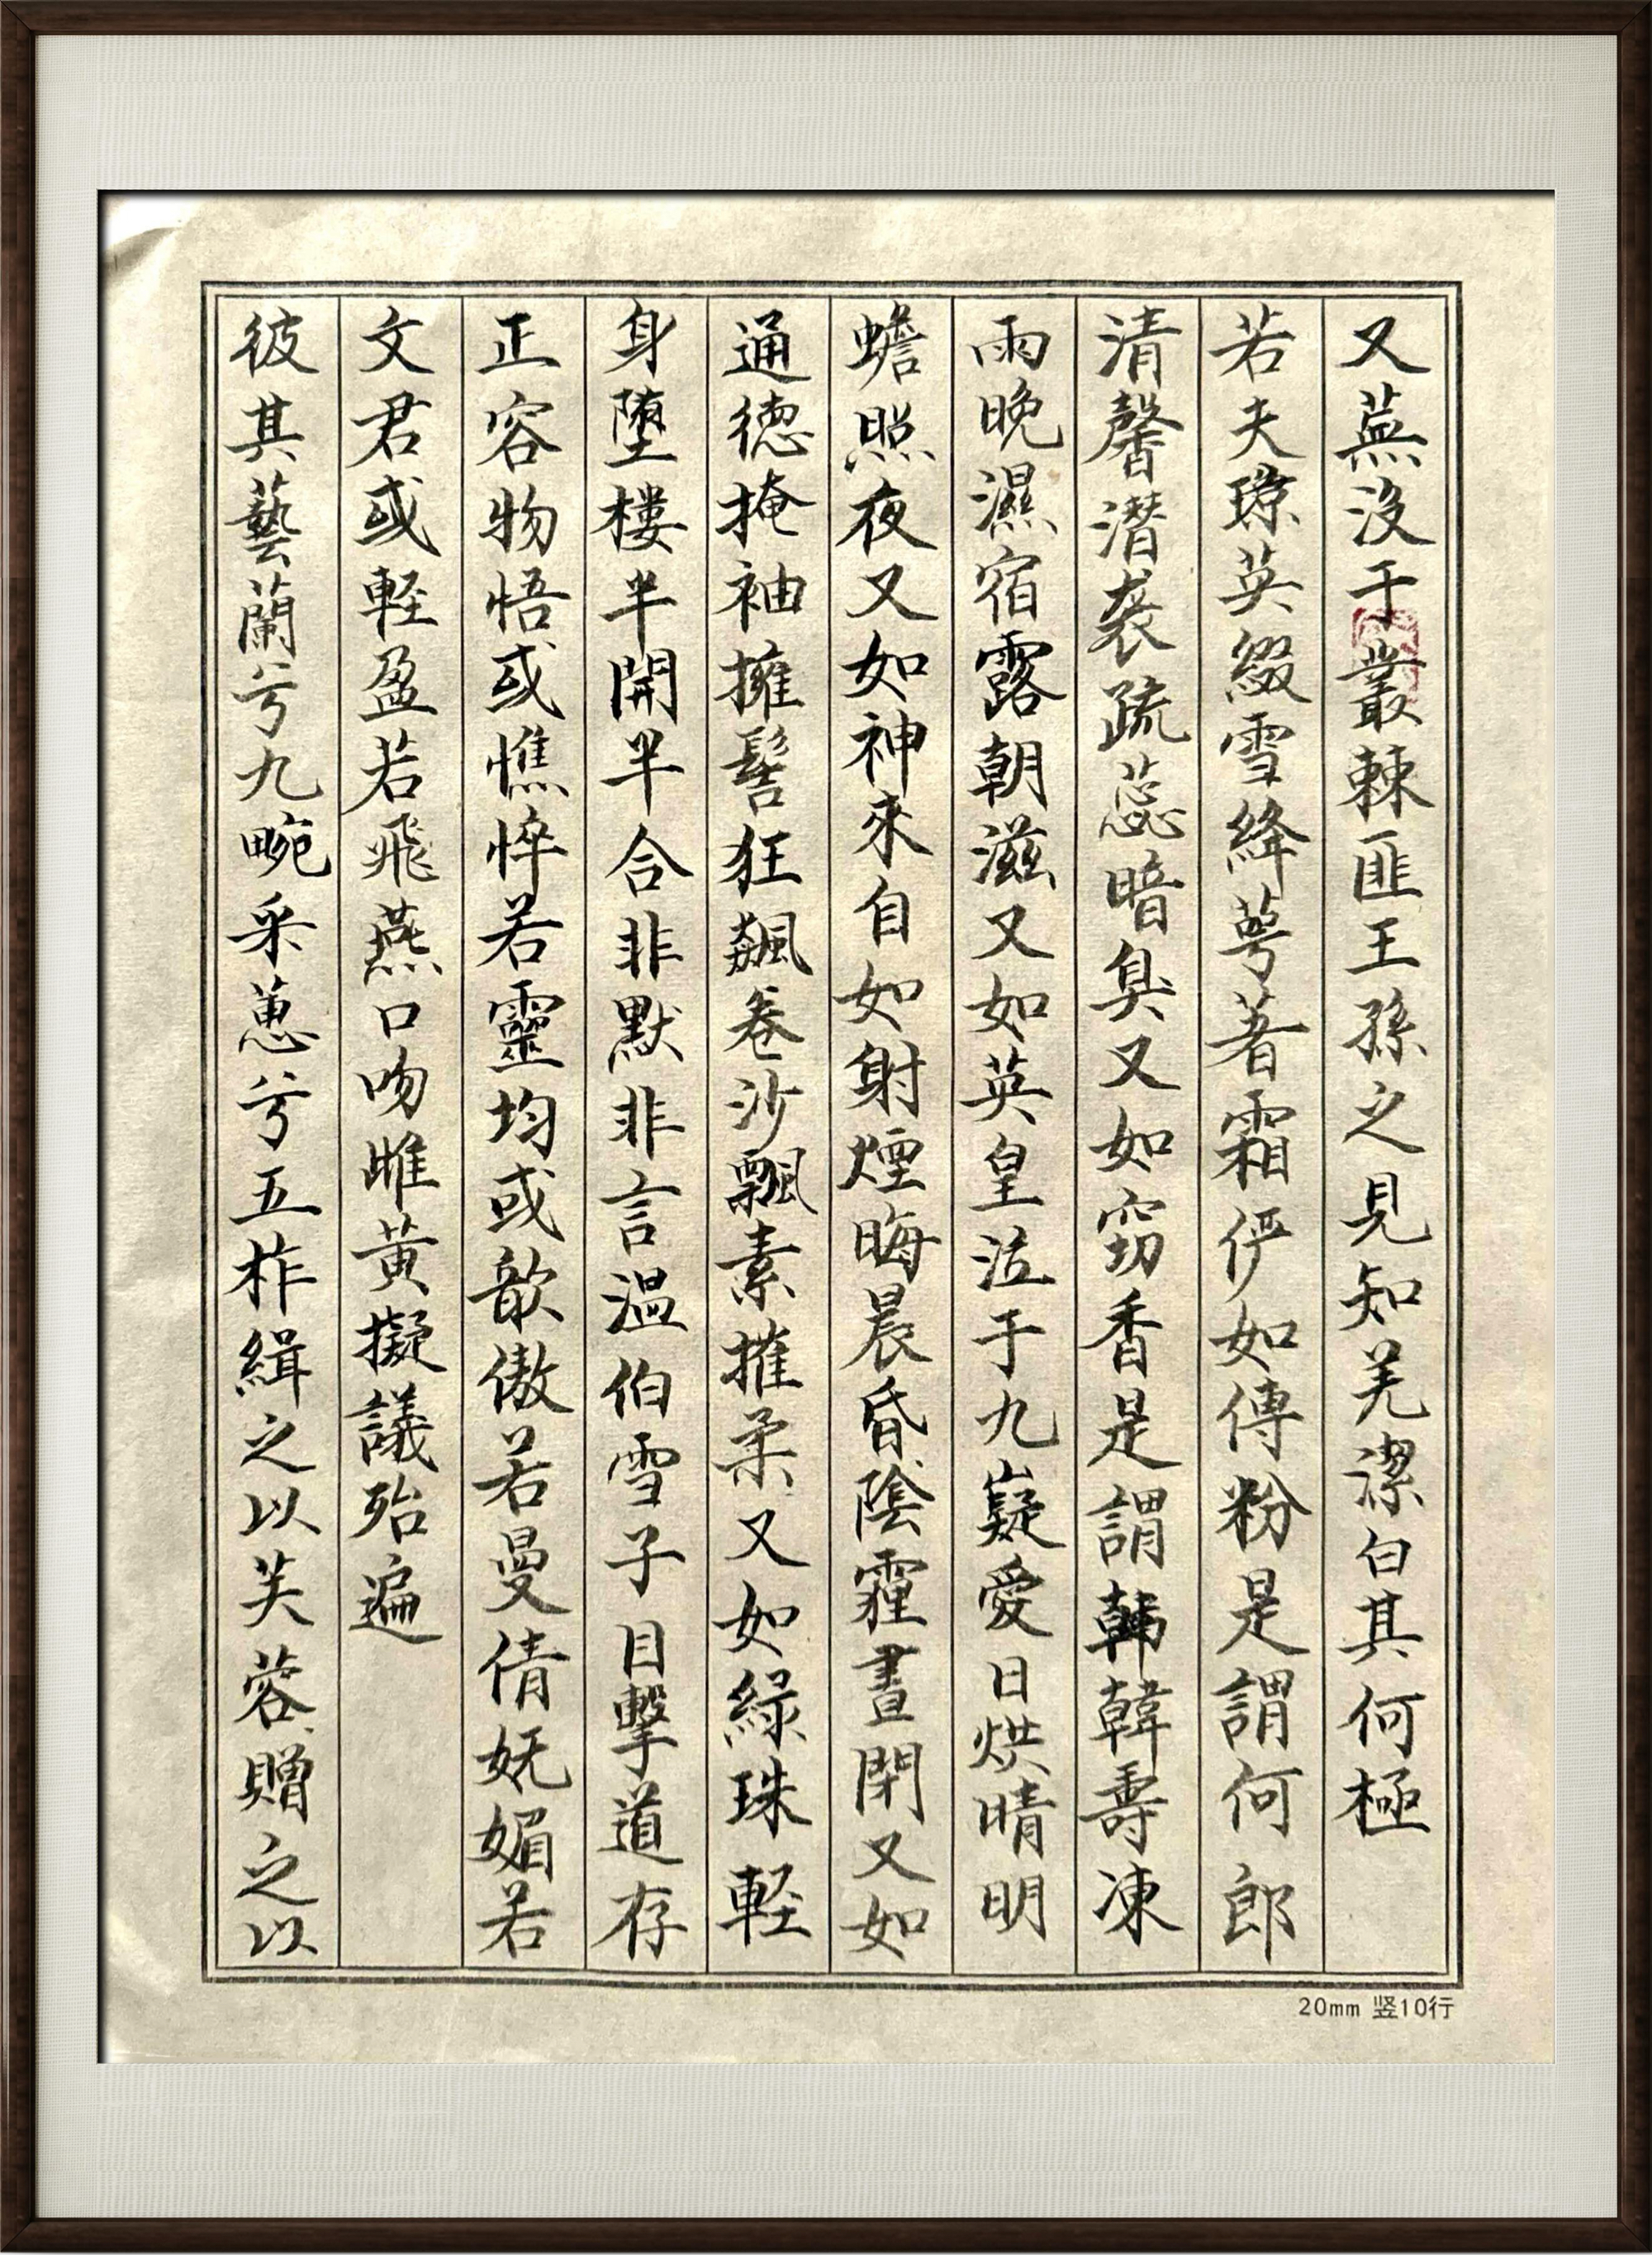 又蕪没于叢棘匪王孫之見知羌潔白其何極
若夫瓊英綴雪絳萼著霜俨如傅粉是謂何郎
清馨潜襲疏蕊暗臭又如窈香是謂韩韓壽凍
雨晚濕宿露朝滋又如英皇泣于九嶷愛日烘晴明
蟾照夜又如神來自如射煙晦晨昏陰霾晝閉又如
通德掩袖擁髻狂飆卷沙飄素摧柔又如緑珠軽
身墮樓半開半合非默非言温伯雪子目擊道存
正容物悟或憔悴若靈均或歆傲若曼倩妩媚若
文君或軽盈若飛燕口吻雌黄擬議殆遍
彼其藝蘭兮九畹采蕙兮五柞緝之以芙蓉贈之以
20mm 竖10行